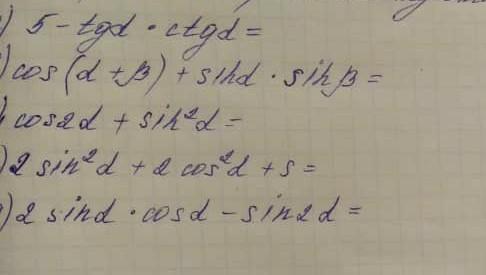 ) 5 - tgα · ctgα =
) cos (α + β) + sinα · sinβ =
) cos2α + sin²α =
) 2 sin²α + 2 cos²α + 5 =
) 2 sinα · cosα - sin2α =